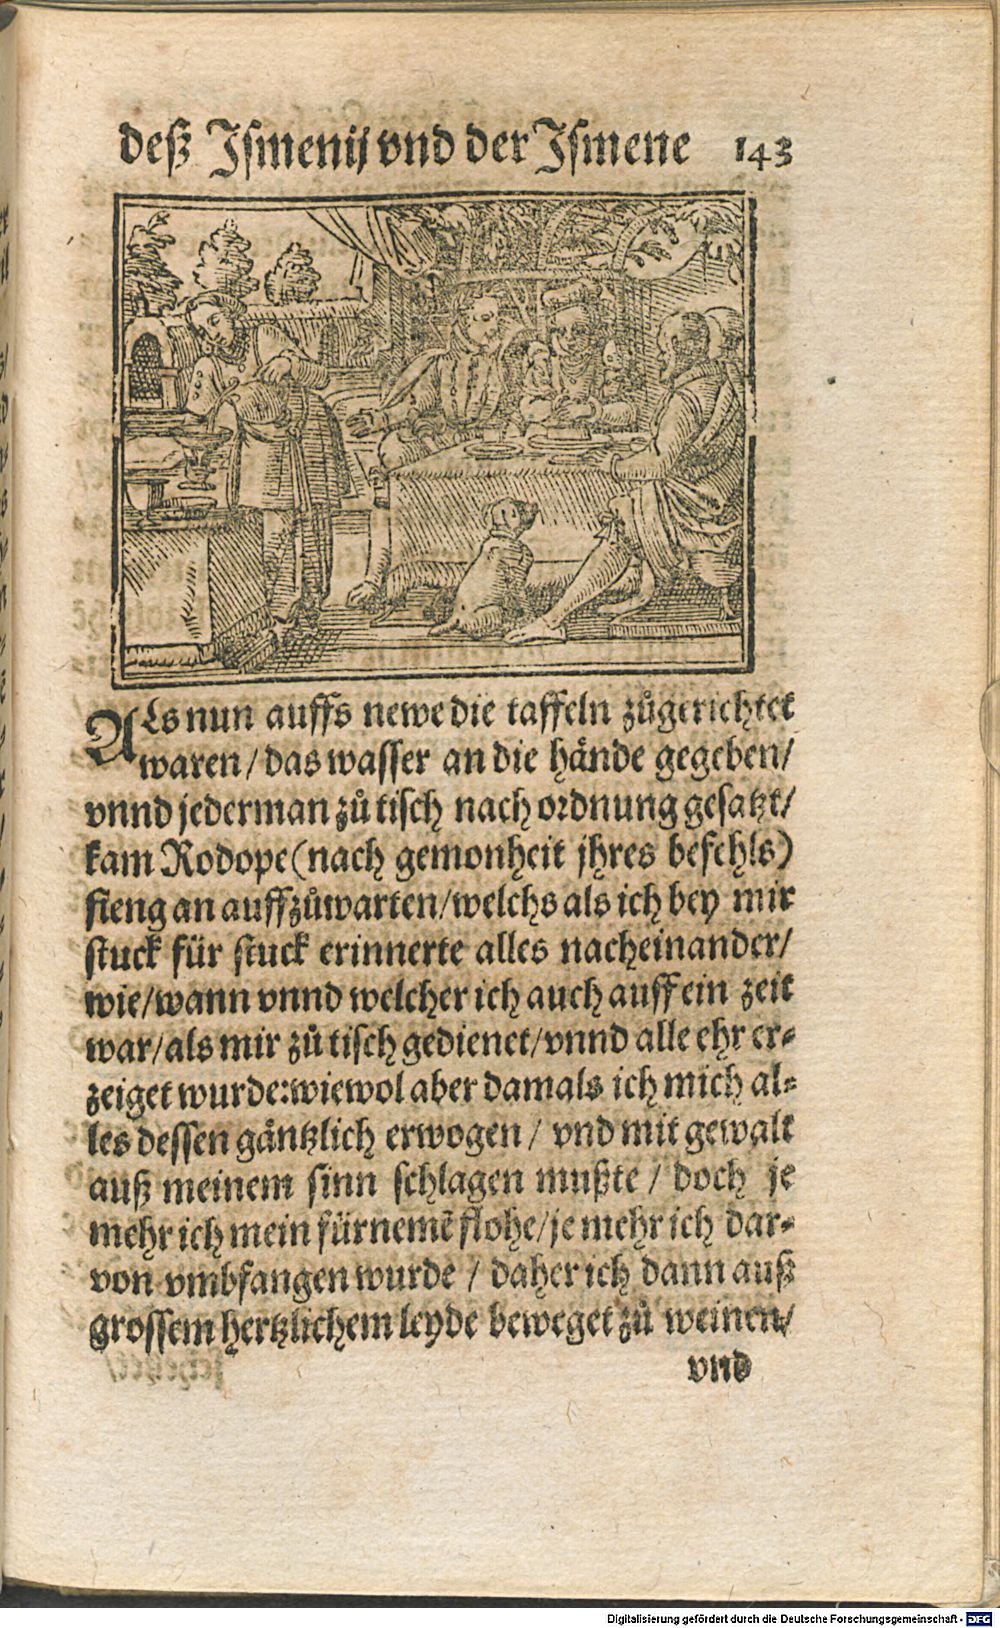 deß Jsmenij vnd der Jsmene 143
ALs nun auffs newe die taffeln zůgerichtet
waren/das wasser an die hände gegeben/
vnnd jederman zů tisch nach ordnung gesatzt/
kam Rodope(nach gemonheit jhres befehls)
fieng an auffzůwarten/welchs als ich bey mir
stuck für stuck erinnerte alles nacheinander/
wie/wann vnnd welcher ich auch auff ein zeit
war/als mir zů tisch gedienet/vnnd alle ehr er-
zeiget wurde:wiewol aber damals ich mich al-
les dessen gäntzlich erwogen/ vnd mit gewalt
auß meinem sinn schlagen mußte / doch je
mehr ich mein fürnemē flohe/je mehr ich dar-
von vmbfangen wurde / daher ich dann auß
grossem hertzlichem leyde beweget zů weinen/
vnd
Digitalisierung gefördert durch die Deutsche Forschungsgemeinschaft - DFG